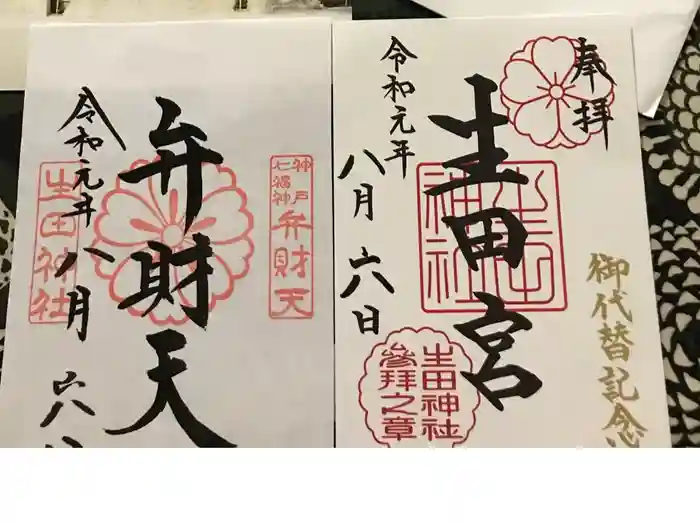 奉拝
生田宮
令和元年
八月六日
御代替記念
生田神社
生田神社
參拜之章
神戸
七福神
弁財天
弁財天
令和元年八月六日
生田神社